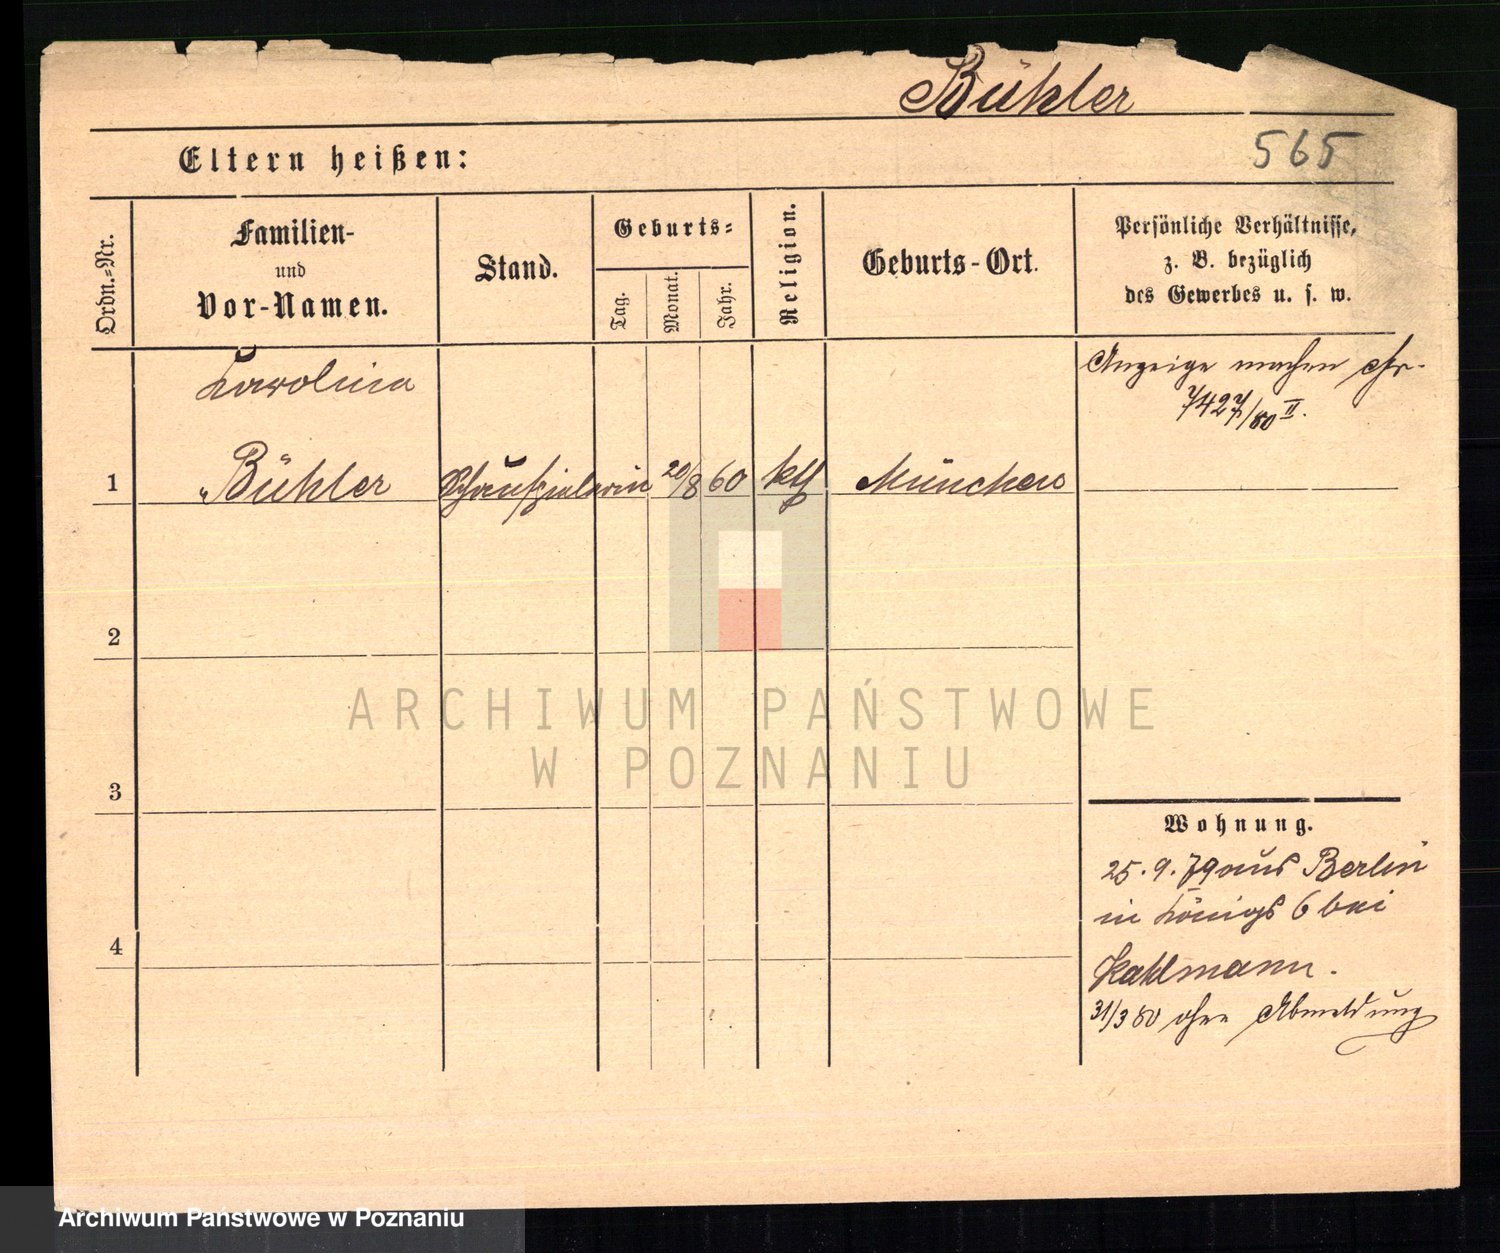 Bühler
565
Eltern heißen:
Ordn.-Nr.
Familien-
und
Vor-Namen.
Stand.
Geburts-
Tag.
Monat.
Jahr.
Religion.
Geburts-Ort.
Persönliche Verhältnisse,
z. B. bezüglich
des Gewerbes u. s. w.
Karolina
Anzeige machen
7427/80 II.
1 Bühler Schauspielerin 20/8 60 kth München
2
3
4
Wohnung.
25. 9. 79 aus Berlin
in Königs 6 bei
Kahlmann.
31/3 80 ohne Abmeldung
ARCHIWUM PAŃSTWOWE
W POZNANIU
Archiwum Państwowe w Poznaniu